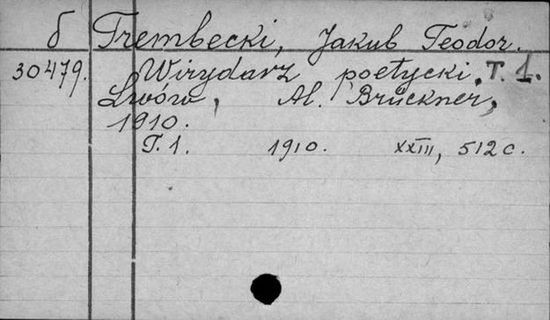 б Trembecki, Jakub Teodor.
30479. Wirydarz poetycki. T. 1.
Lwów, Al. Brückner,
1910.
T. 1. 1910. XXIII, 512 c.